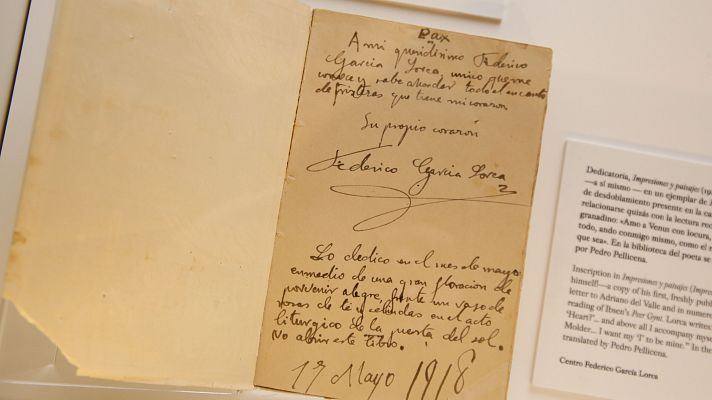 Pax
A mi queridisimo Federico
Garcia Lorca, unico que me
conoce y sabe ahondar todo el encanto
de tristezas que tiene mi corazon
Su propio corazón
Federico Garcia Lorca
Lo dedico en el mes de mayo
enmedio de una gran floracion de
porvenir alegre, frente un vaso de
rosas de té y celindas en el acto
liturgico de la puesta del sol.
No abrir este libro.
17 Mayo 1918
Dedicatoria, Impresiones y paisajes (19
—a sí mismo — en un ejemplar de
de desdoblamiento presente en la ca
relacionarse quizás con la lectura rec
granadino: «Amo a Venus con locura,
todo, ando conmigo mismo, como el
que sea». En la biblioteca del poeta se
por Pedro Pellicena.
Inscription in Impresiones y paisajes (Impre
himself—a copy of his first, freshly publ
letter to Adriano del Valle and in numero
reading of Ibsen's Peer Gynt. Lorca writes:
'Heart?'... and above all I accompany myse
Molder... I want my 'I' to be mine.'" In the
translated by Pedro Pellicena.
Centro Federico García Lorca